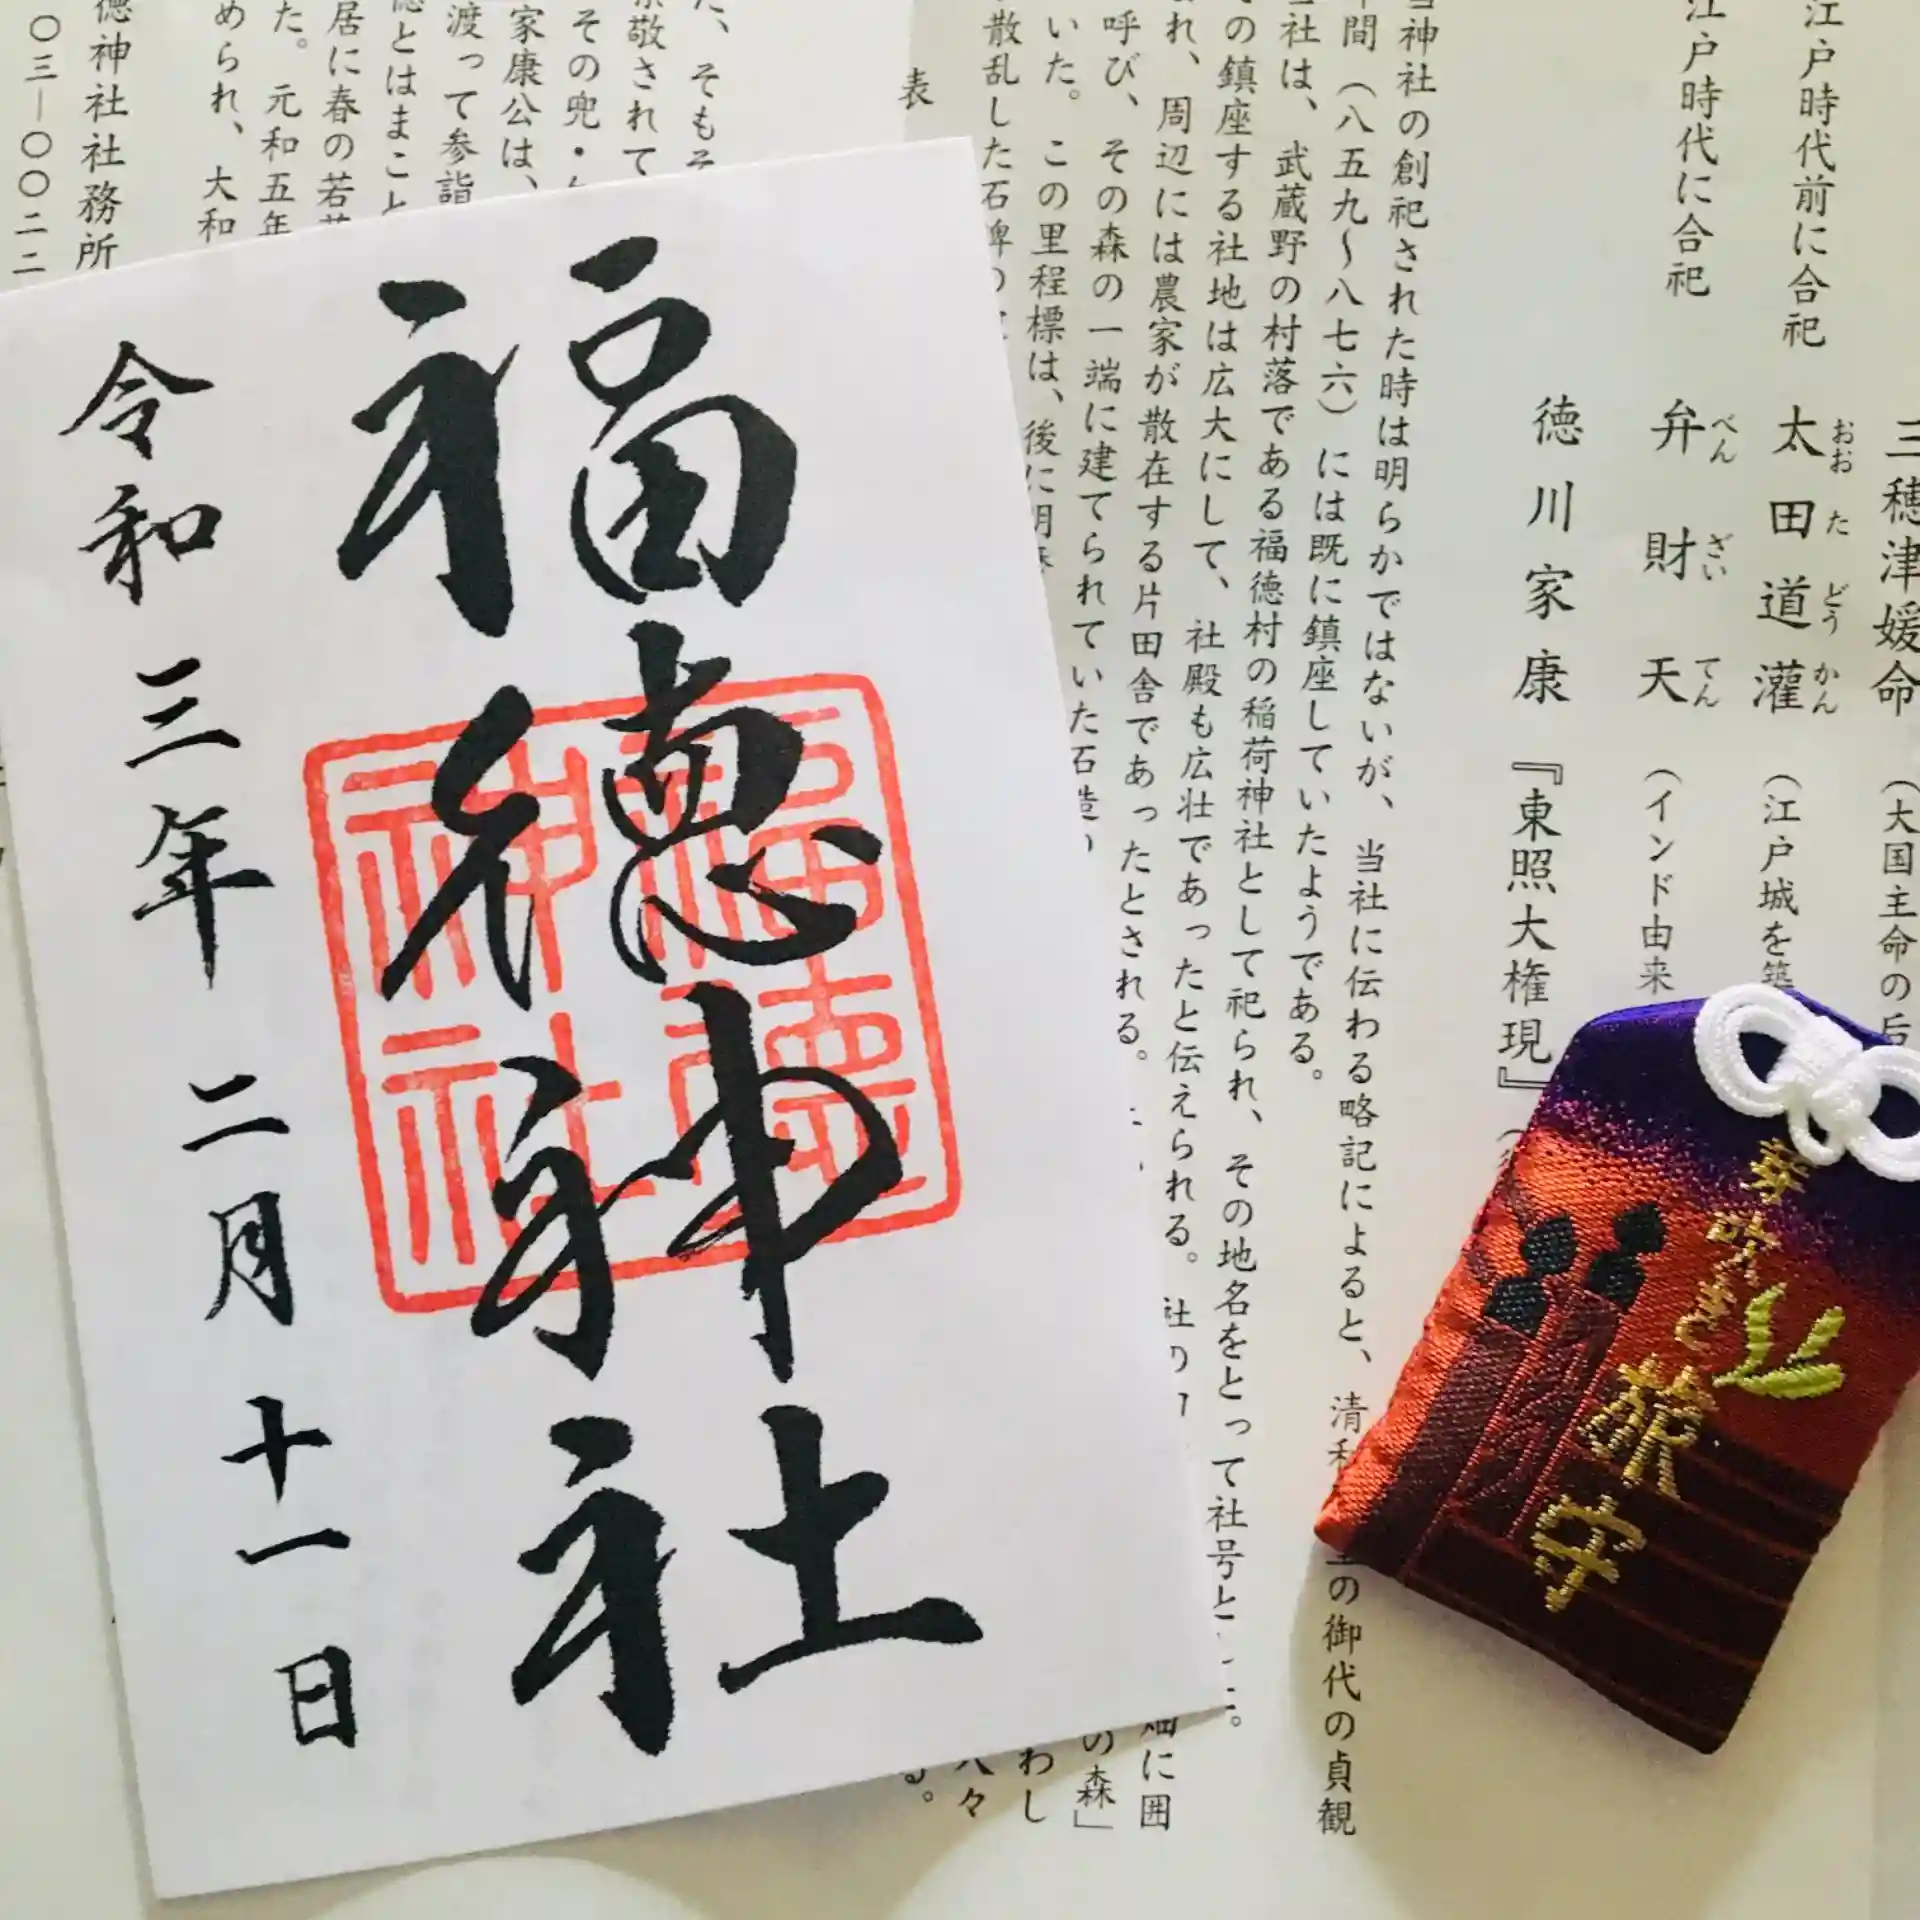 福徳神社
令和三年 二月十一日
福徳
神社
芽吹き
福守
三穂津媛命 (大国主命の后
江戸時代前に合祀
太田道灌 (江戸城を築
おおたどうかん
江戸時代に合祀
弁財天 (インド由来
べんざいてん
徳川家康 『東照大権現』(
当神社の創祀された時は明らかではないが、当社に伝わる略記によると、清和
の御代の貞観
年間(八五九〜八七六)には既に鎮座していたようである。
当社は、武蔵野の村落である福徳村の稲荷神社として祀られ、その地名をとって社号と
の鎮座する社地は広大にして、社殿も広壮であったと伝えられる。社の
畑に囲
まれ、周辺には農家が散在する片田舎であったとされる。
の森」
呼び、その森の一端に建てられていた石造
わし
いた。この里程標は、後に明
人々
散乱した石碑の
る。
表
た、そもそ
崇敬されて
その兜・
家康公は、
渡って参詣
徳とはまこと
居に春の若芽
た。元和五年
められ、大和
徳神社社務所
〇三―〇〇二二